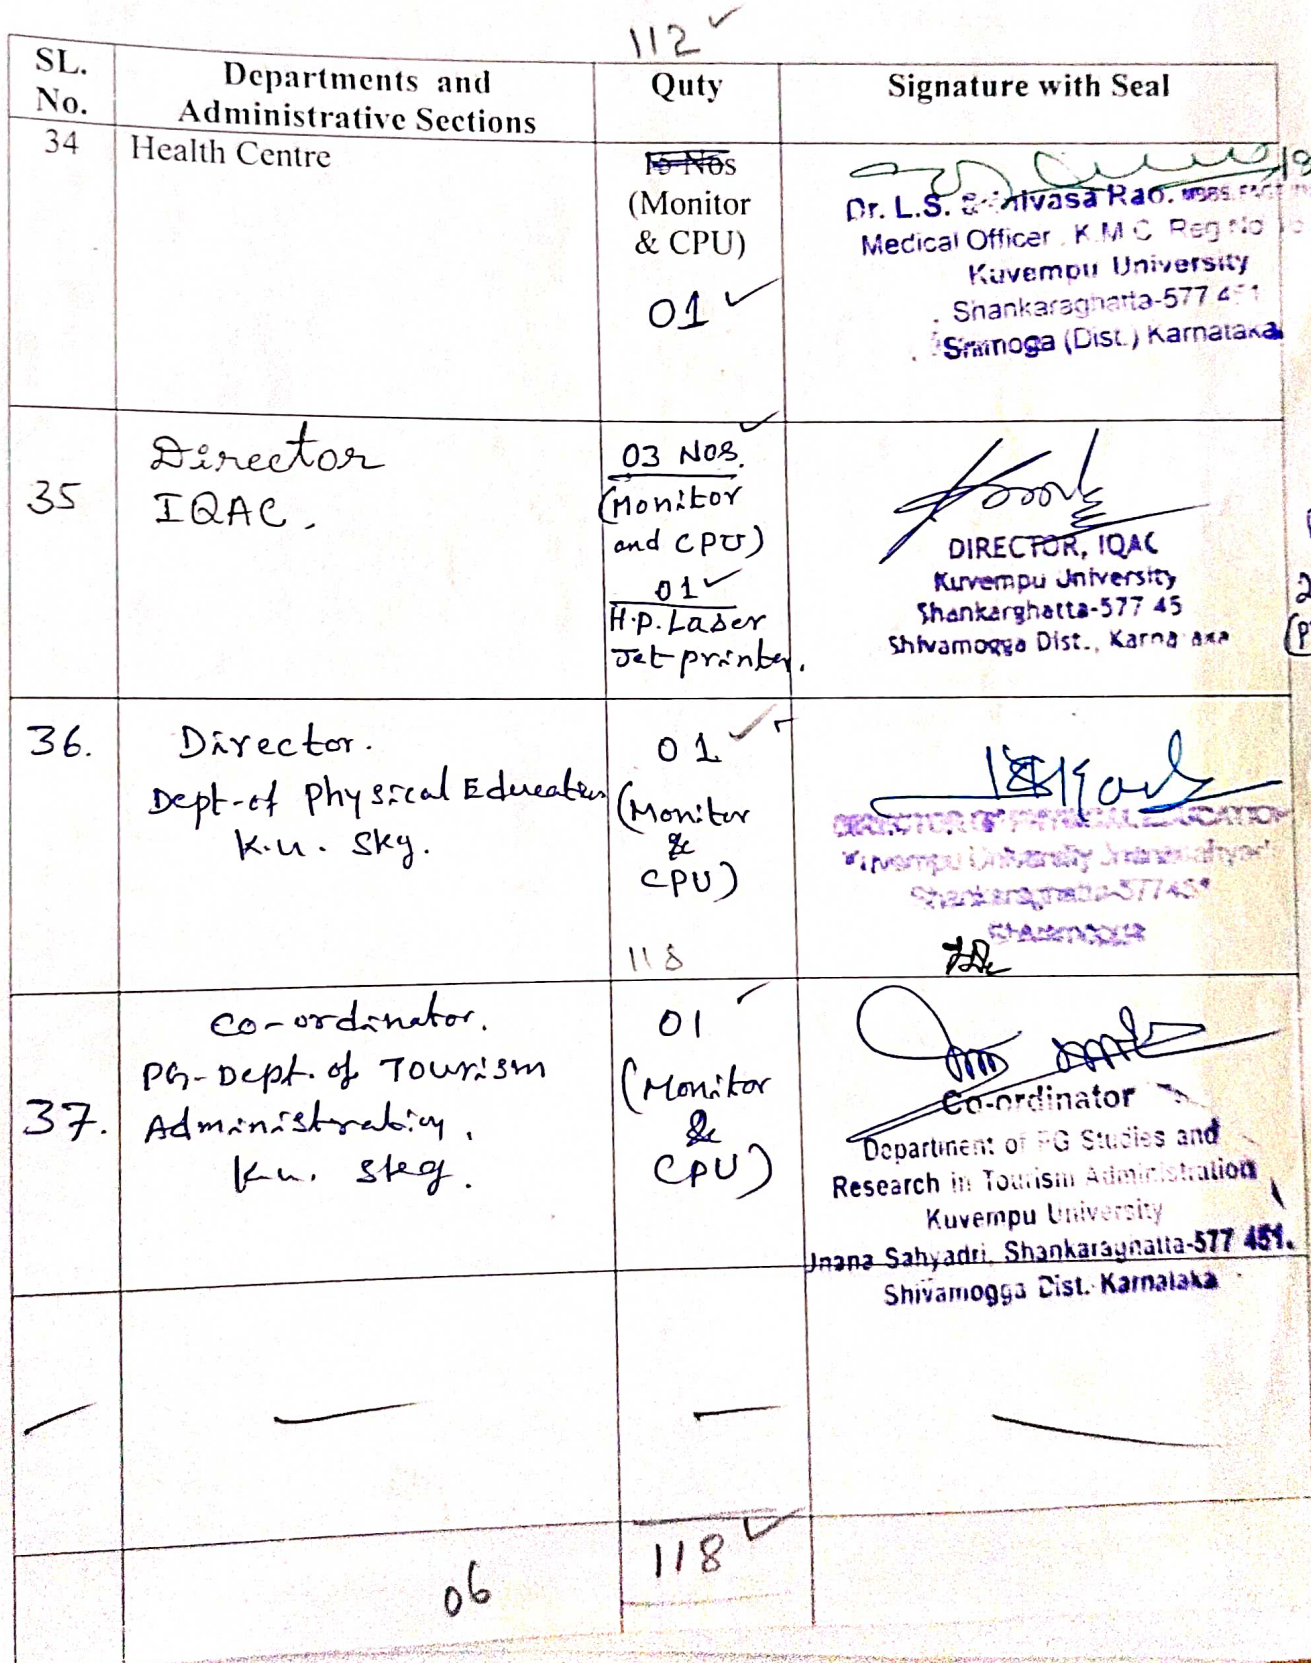 112 ✓
SL. No. Departments and Administrative Sections Quty Signature with Seal
34 Health Centre
Nos
(Monitor
& CPU)
01 ✓
Dr. L.S. Srinivasa Rao.
Medical Officer. K.M.C. Reg No
Kuvempu University
Shankaraghatta-577 451
Shimoga (Dist.) Karnataka
35
Director
IQAC.
03 Nos. ✓
(Monitor
and CPU)
01 ✓
H.P. Laser
Jet printer.
DIRECTOR, IQAC
Kuvempu University
Shankarghatta-577 45
Shivamogga Dist., Karna aka
36.
Director.
Dept-of Physical Education
K.u. Skg.
01 ✓
(Monitor
&
CPU)
118
DIRECTOR OF PHYSICAL EDUCATION
Kuvempu University
Shankaraghatta-577451
37.
Co-ordinator.
PG-Dept. of Tourism
Administration.
K.u. Skg.
01 ✓
(Monitor
&
CPU)
Co-ordinator
Department of PG Studies and
Research in Tourism Administration
Kuvempu University
Jnana Sahyadri, Shankaraghatta-577 451.
Shivamogga Dist. Karnataka
118 ✓
06